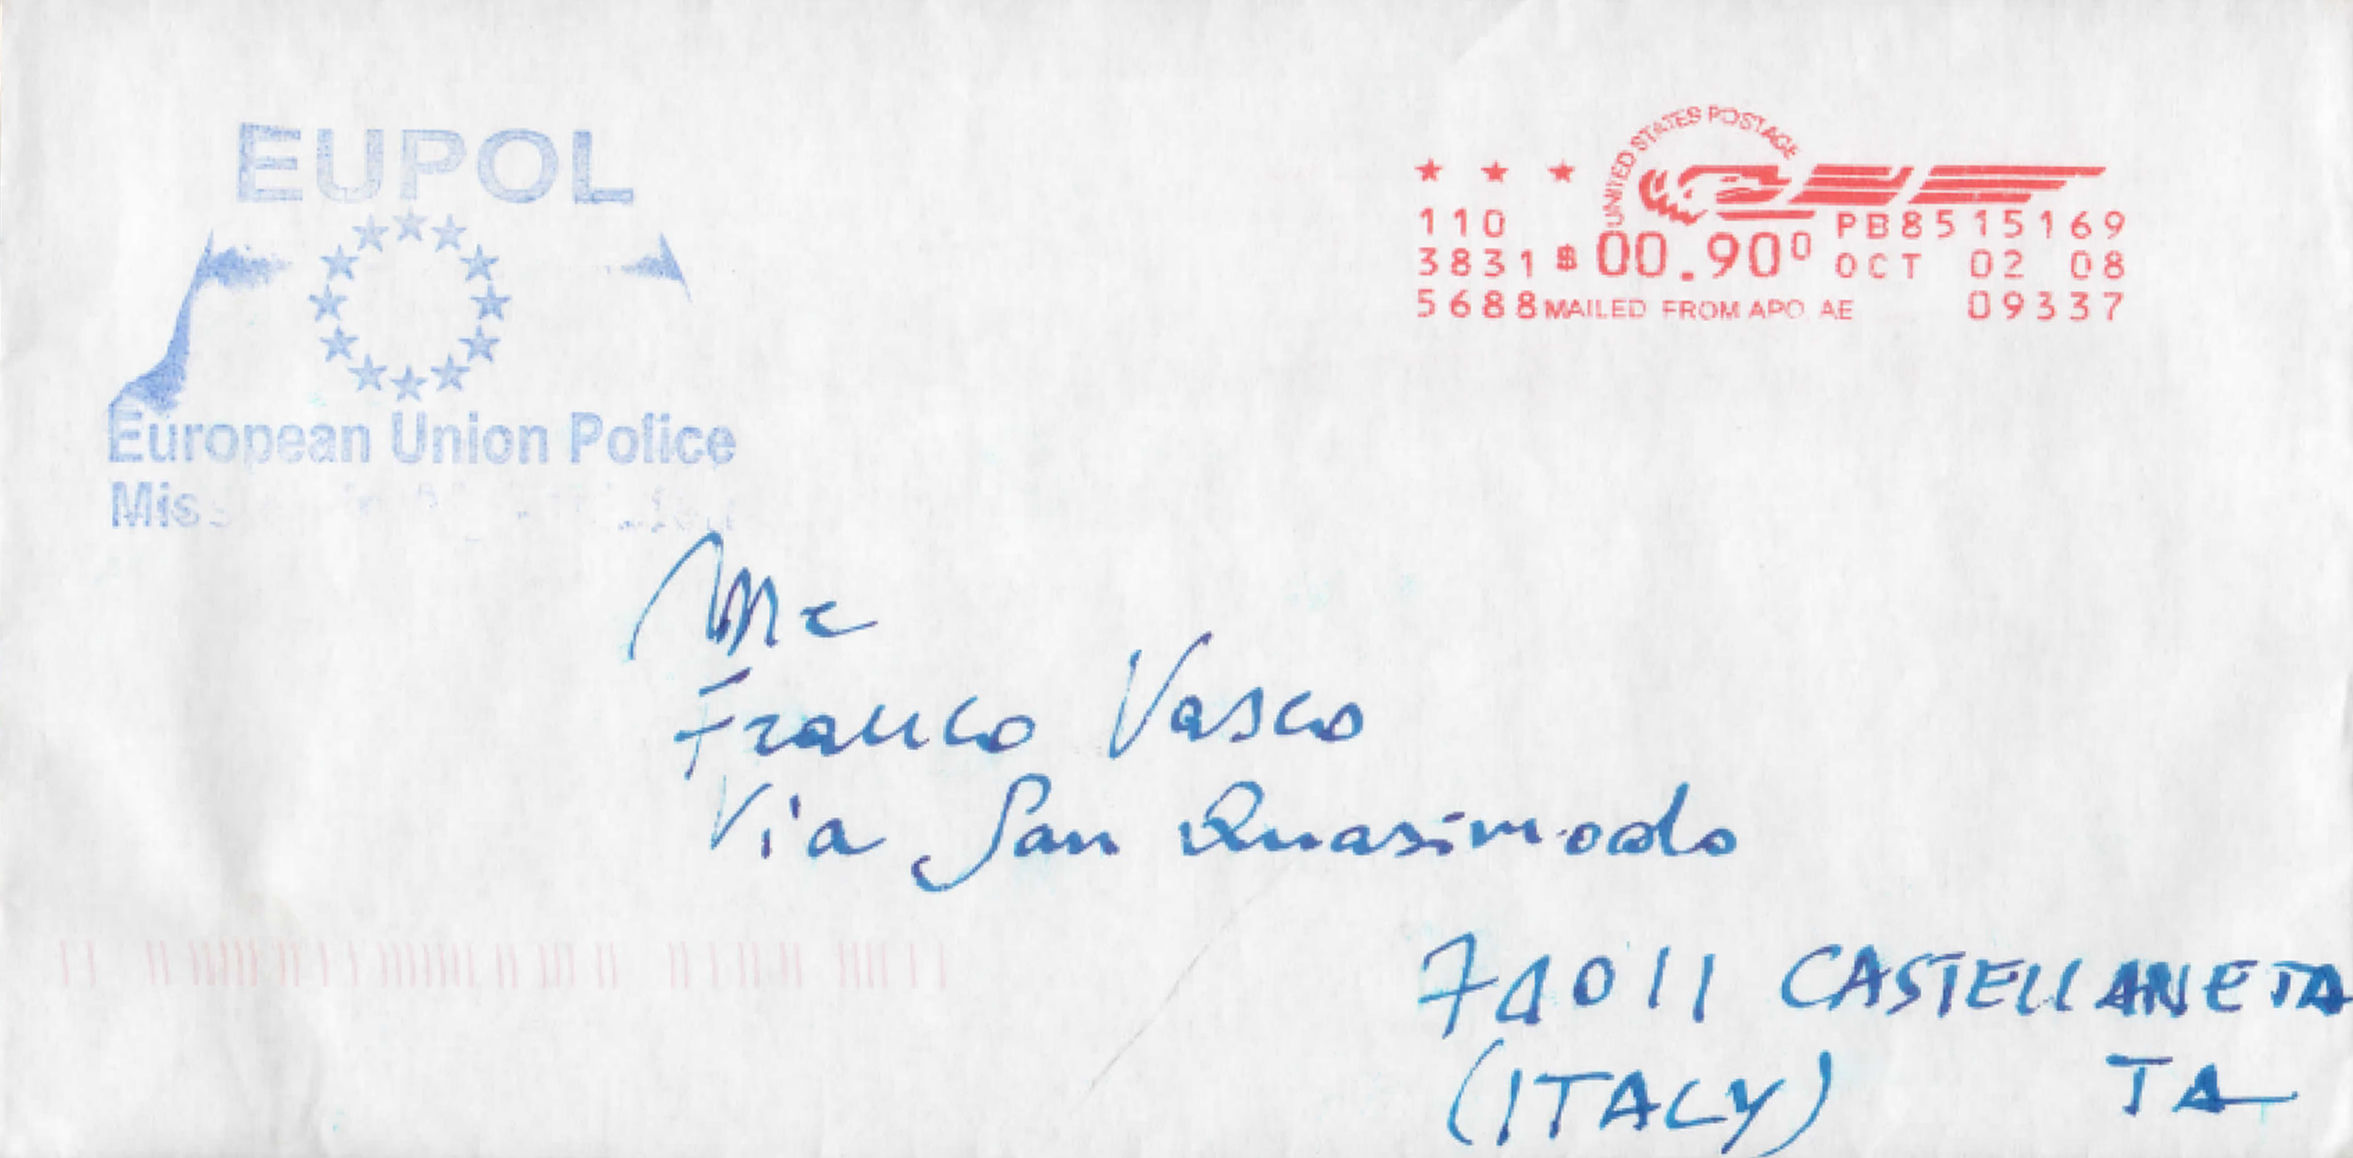 EUPOL
European Union Police
UNITED STATES POSTAGE
110 PB8515169
3831 $ 00.90⁰ OCT 02 08
5688 MAILED FROM APO AE 09337
Mr
Franco Vasco
Via San Quasimodo
74011 CASTELLANETA
(ITALY) TA